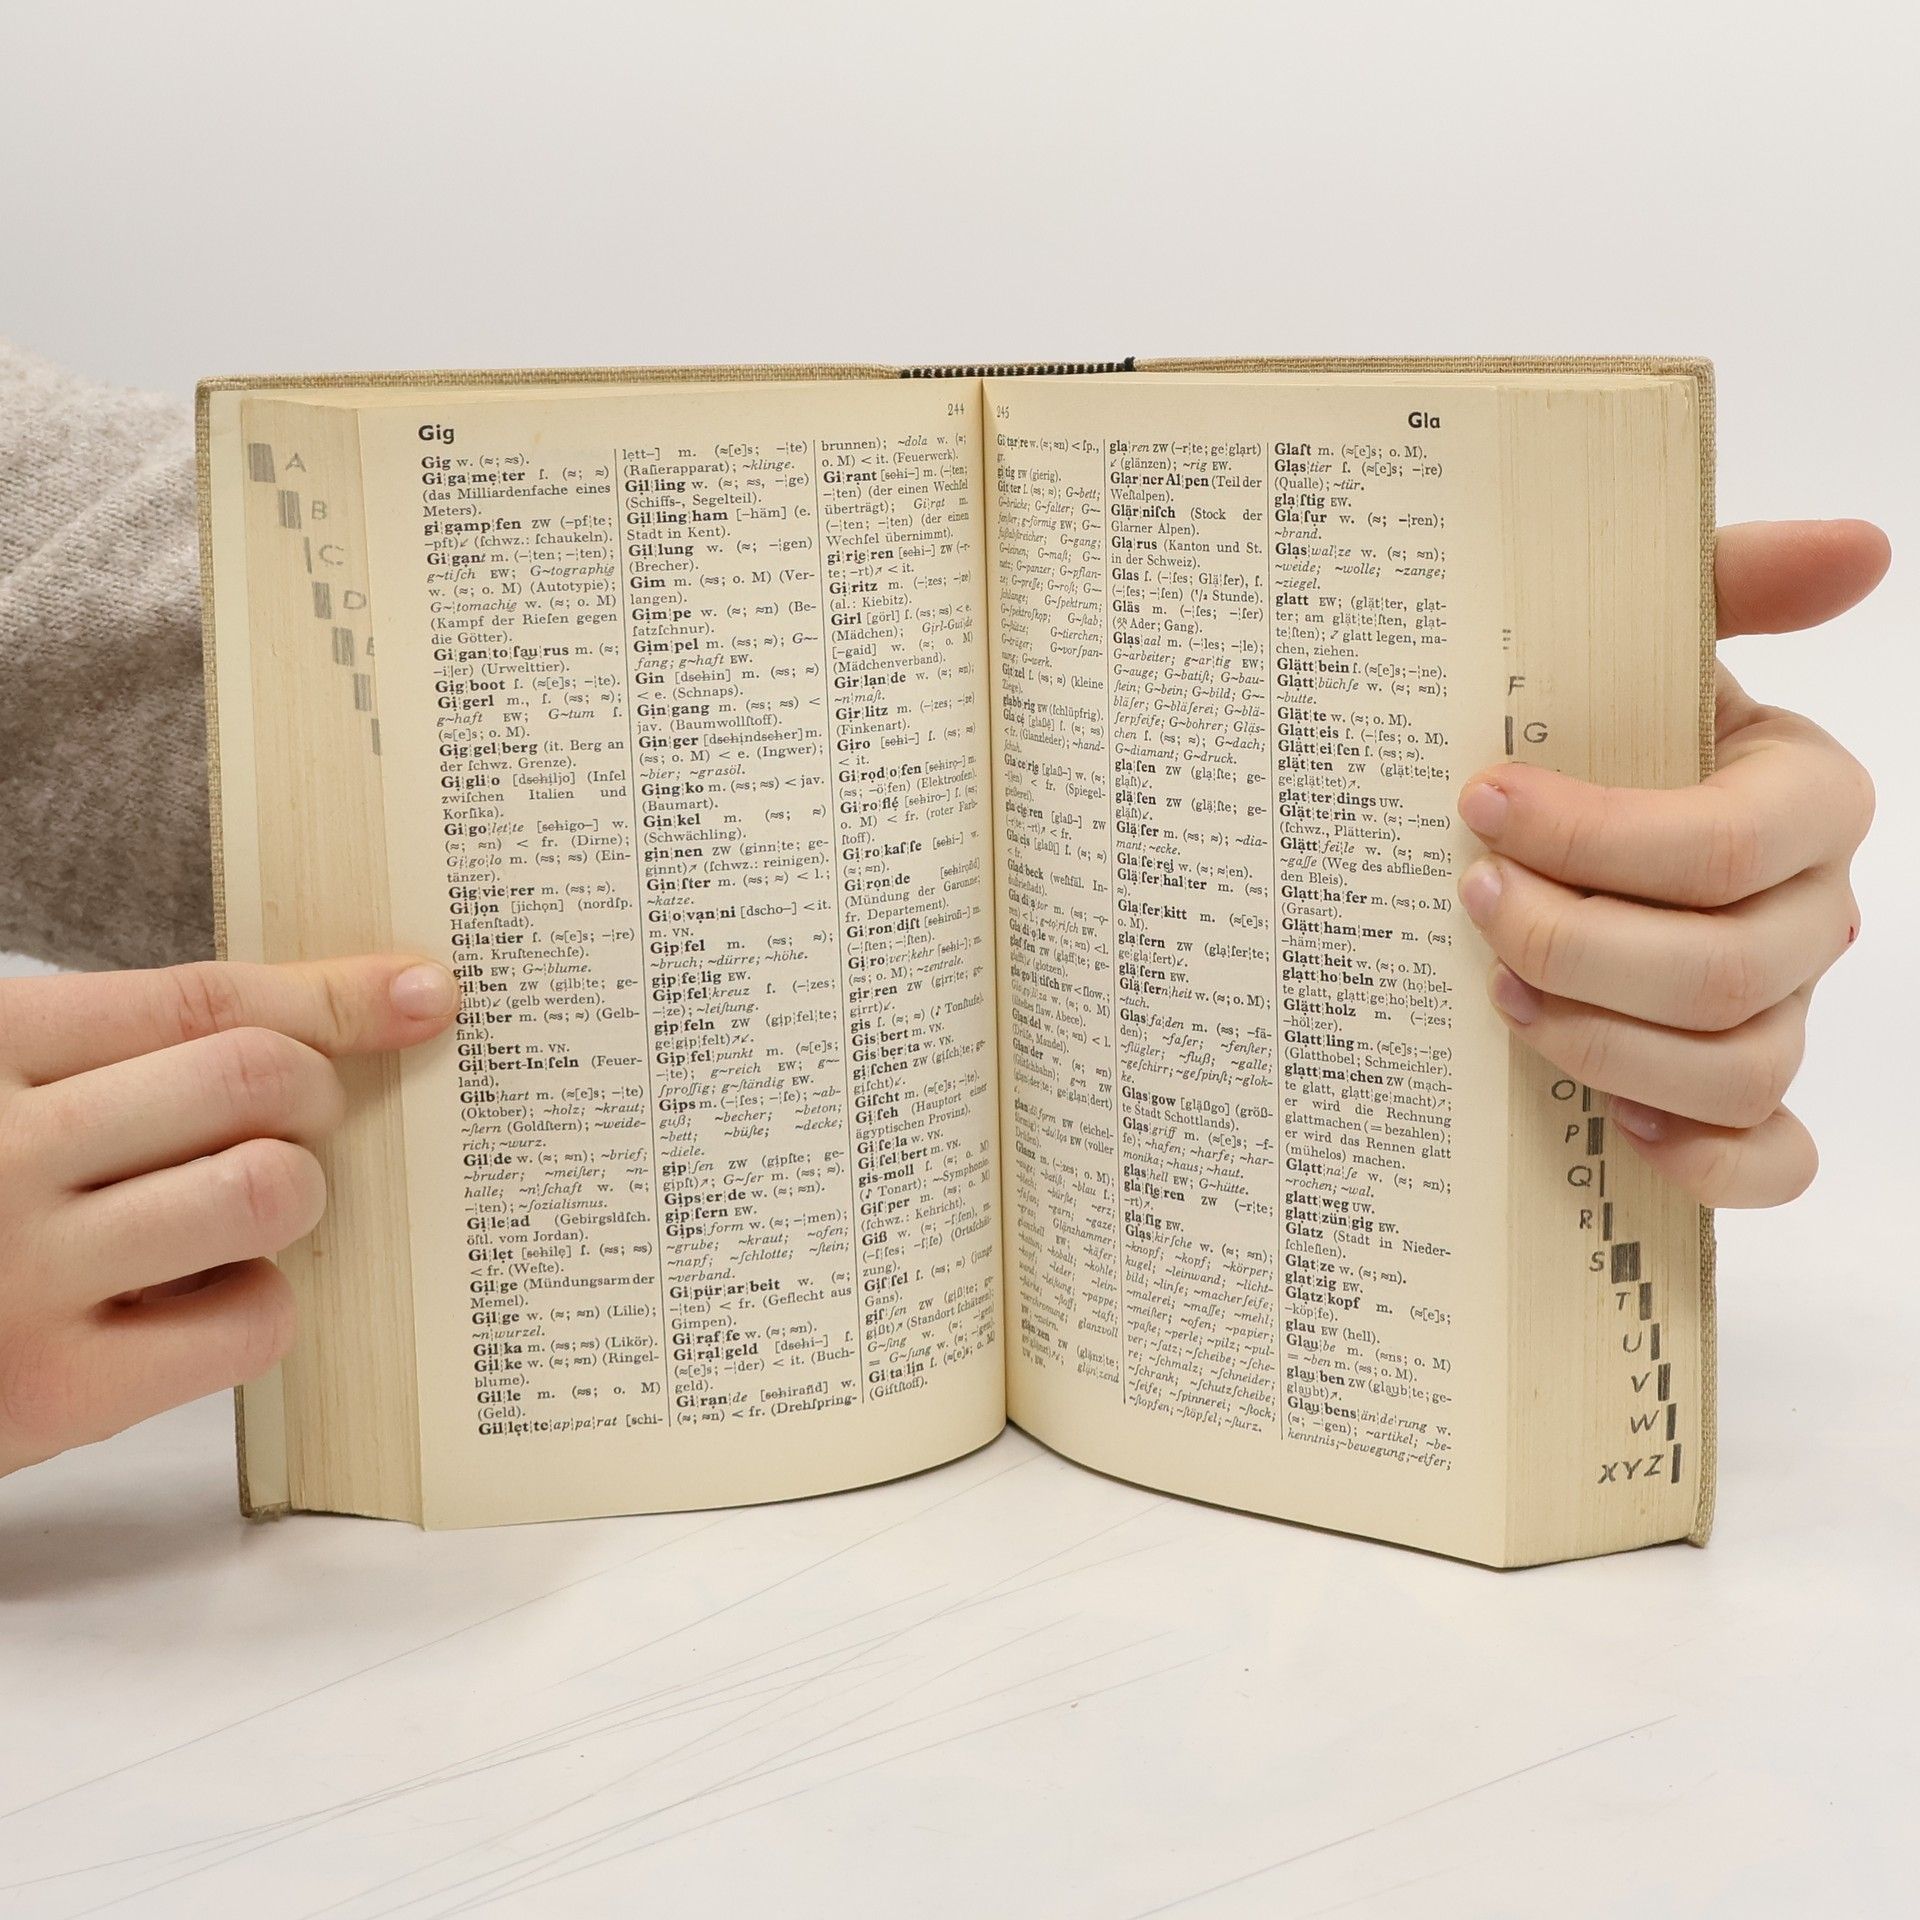 Gig
244
Gig w. (≈; ≈s).
Gi¦ga¦me¦ter ſ. (≈; ≈)
(das Milliardenfache eines
Meters).
gi¦gamp¦fen ZW (–pf¦te;
–pft)↙ (ſchwz.: ſchaukeln).
Gi¦gant m. (–¦ten; –¦ten);
g~tiſch EW; G~tographie
w. (≈; o. M) (Autotypie);
G~¦tomachie w. (≈; o. M)
(Kampf der Rieſen gegen
die Götter).
Gi¦gan¦to¦ſau¦rus m. (≈;
–i¦ler) (Urwelttier).
Gig¦boot ſ. (≈[e]s; –¦te).
Gi¦gerl m., ſ. (≈s; ≈);
g~haft EW; G~tum ſ.
(≈[e]s; o. M).
Gig¦gel¦berg (it. Berg an
der ſchwz. Grenze).
Gi¦gli¦o [dschiljo] (Inſel
zwiſchen Italien und
Korſika).
Gi¦go¦let¦te [schigo–] w.
(≈; ≈n) < fr. (Dirne);
Gi¦go¦lo m. (≈s; ≈s) (Ein-
tänzer).
Gig¦vie¦rer m. (≈s; ≈).
Gi¦jon [jichon] (nordſp.
Hafenſtadt).
Gi¦la¦tier ſ. (≈[e]s; –¦re)
(am. Kruſtenechſe).
gilb EW; G~¦blume.
gil¦ben ZW (gilb¦te; ge-
gilbt)↙ (gelb werden).
Gil¦ber m. (≈s; ≈) (Gelb-
fink).
Gil¦bert m. VN.
Gil¦bert-In¦ſeln (Feuer-
land).
Gilb¦hart m. (≈[e]s; –¦te)
(Oktober); ~holz; ~kraut;
~ſtern (Goldſtern); ~weide-
rich; ~wurz.
Gil¦de w. (≈; ≈n); ~brief;
~bruder; ~meiſter; ~n-
halle; ~n¦ſchaft w. (≈;
–¦ten); ~ſozialismus.
Gi¦le¦ad (Gebirgsldſch.
öſtl. vom Jordan).
Gi¦let [schile] ſ. (≈s; ≈s)
< fr. (Weſte).
Gil¦ge (Mündungsarm der
Memel).
Gil¦ge w. (≈; ≈n) (Lilie);
~n¦wurzel.
Gil¦ka m. (≈s; ≈s) (Likör).
Gil¦ke w. (≈; ≈n) (Ringel-
blume).
Gil¦le m. (≈s; o. M)
(Geld).
Gil¦let¦te¦ap¦pa¦rat [schi-
lett–] m. (≈[e]s; –¦te)
(Raſierapparat); ~klinge.
Gil¦ling w. (≈; ≈s, –¦ge)
(Schiffs-, Segelteil).
Gil¦ling¦ham [–häm] (e.
Stadt in Kent).
Gil¦lung w. (≈; –¦gen)
(Brecher).
Gim m. (≈s; o. M) (Ver-
langen).
Gim¦pe w. (≈; ≈n) (Be-
ſatzſchnur).
Gim¦pel m. (≈s; ≈); G~-
fang; g~haft EW.
Gin [dschin] m. (≈s; ≈)
< e. (Schnaps).
Gin¦gang m. (≈s; ≈s) <
jav. (Baumwollſtoff).
Gin¦ger [dschindscher] m.
(≈s; o. M) < e. (Ingwer);
~bier; ~grasöl.
Ging¦ko m. (≈s; ≈s) < jav.
(Baumart).
Gin¦kel m. (≈s; ≈)
(Schwächling).
gin¦nen ZW (ginn¦te; ge-
ginnt)↗ (ſchwz.: reinigen).
Gin¦ſter m. (≈s; ≈) < l.;
~katze.
Gi¦o¦van¦ni [dscho–] < it.
m. VN.
Gip¦fel m. (≈s; ≈);
~bruch; ~dürre; ~höhe.
gip¦fe¦lig EW.
Gip¦fel¦kreuz ſ. (–¦zes;
–¦ze); ~leiſtung.
gip¦feln ZW (gip¦fel¦te;
ge¦gip¦felt)↗↙.
Gip¦fel¦punkt m. (≈[e]s;
–¦te); g~reich EW; g~-
ſproſſig; g~ſtändig EW.
Gips m. (–¦ſes; –¦ſe); ~ab-
guß; ~becher; ~beton;
~bett; ~büſte; ~decke;
~diele.
gip¦ſen ZW (gipſ¦te; ge-
gipſt)↗; G~ſer m. (≈s; ≈).
Gips¦er¦de w. (≈; ≈n).
gip¦ſern EW.
Gips¦form w. (≈; –¦men);
~grube; ~kraut; ~ofen;
~napf; ~ſchlotte; ~ſtein;
~verband.
Gi¦pür¦ar¦beit w. (≈;
–¦ten) < fr. (Geflecht aus
Gimpen).
Gi¦raf¦fe w. (≈; ≈n).
Gi¦ral¦geld [dschi–] ſ.
(≈[e]s; –¦der) < it. (Buch-
geld).
Gi¦ran¦de [schirañd] w.
(≈; ≈n) < fr. (Drehſpring-
brunnen); ~dola w. (≈;
o. M) < it. (Feuerwerk).
Gi¦rant [schi–] m. (–¦ten;
–¦ten) (der einen Wechſel
überträgt); Gi¦rat m.
(–¦ten; –¦ten) (der einen
Wechſel übernimmt).
gi¦rie¦ren [schi–] ZW (–r-
te; –rt)↗ < it.
Gi¦ritz m. (–¦zes; –¦ze)
(al.: Kiebitz).
Girl [görl] ſ. (≈s; ≈s) < e.
(Mädchen); Girl-Gui¦de
[–gaid] w. (≈; o. M)
(Mädchenverband).
Gir¦lan¦de w. (≈; ≈n);
~n¦maſt.
Gir¦litz m. (–¦zes; –¦ze)
(Finkenart).
Giro [schi–] ſ. (≈s; ≈s)
< it.
Gi¦rod¦o¦fen [schiro–] m.
(≈s; –ö¦fen) (Elektroofen).
Gi¦ro¦flé [schiro–] ſ. (≈s;
o. M) < fr. (roter Farb-
ſtoff).
Gi¦ro¦kaſ¦ſe [schi–] w.
(≈; ≈n).
Gi¦ron¦de [schirond]
(Mündung der Garonne;
fr. Departement).
Gi¦ron¦diſt [schiroñ–] m.
(–¦ſten; –¦ſten).
Gi¦ro¦ver¦kehr [schi–] m.
(≈s; o. M); ~zentrale.
gir¦ren ZW (girr¦te; ge-
girrt)↙.
gis ſ. (≈; ≈) (♪ Tonſtufe).
Gis¦bert m. VN.
Gis¦ber¦ta w. VN.
gi¦ſchen ZW (giſch¦te; ge-
giſcht)↙.
Giſcht m. (≈[e]s; –¦te).
Gi¦ſeh (Hauptort einer
ägyptiſchen Provinz).
Gi¦ſe¦la w. VN.
Gi¦ſel¦bert m. VN.
gis-moll ſ. (≈; o. M)
(♪ Tonart); ~-Symphonie.
Giſ¦per m. (≈s; o. M)
(ſchwz.: Kehricht).
Giß w. (≈; –ſ¦ſen), m.
(–ſ¦ſes; –ſ¦ſe) (Ortsſchät-
zung).
Giſ¦ſel ſ. (≈s; ≈) (junge
Gans).
giſ¦ſen ZW (giß¦te; ge-
gißt)↗ (Standort ſchätzen);
G~ſing w. (≈; –¦gen)
= G~ſung w. (≈; –¦gen).
Gi¦ta¦lin ſ. (≈[e]s; o. M)
(Giftſtoff).
245
Gla
Gi¦tar¦re w. (≈; ≈n) < ſp.,
gr.
gi¦tig EW (gierig).
Git¦ter ſ. (≈s; ≈); G~bett;
G~brücke; G~falter; G~-
fenſter; g~förmig EW; G~-
G~gang;
G~leinen; G~maſt; G~-
netz; G~panzer; G~pflan-
ze; G~preſſe; G~roſt; G~-
ſchlange; G~ſpektrum;
G~ſpektroſkop; G~ſtab;
G~ſtütze; G~tierchen;
G~träger; G~vorſpan-
nung; G~werk.
Git¦zel ſ. (≈s; ≈) (kleine
Ziege).
glabb¦rig EW (ſchlüpfrig).
Gla¦cé [glaßé] ſ. (≈s; ≈s)
< fr. (Glanzleder); ~hand-
ſchuh.
Gla¦ce¦rie [glaß–] w. (≈;
–i¦en) < fr. (Spiegel-
gießerei).
gla¦cie¦ren [glaß–] ZW
(–r¦te; –rt)↗ < fr.
Gla¦cis [glaßi] ſ. (≈; ≈)
< fr.
Glad¦beck (weſtfäl. In-
duſtrieſtadt).
Gla¦di¦a¦tor m. (≈s; –o-
ren) < l.; g~to¦riſch EW.
Gla¦di¦o¦le w. (≈; ≈n) < l.
glaf¦fen ZW (glaff¦te; ge-
glafft)↙ (glotzen).
gla¦go¦li¦tiſch EW < ſlow.;
Gla¦go¦li¦za w. (≈; o. M)
(älteſtes ſlaw. Abece).
Glan¦del w. (≈; ≈n) < l.
(Drüſe, Mandel).
Glan¦der w. (≈; ≈n)
(Gleitſchbahn); g~n ZW
(glan¦der¦te; ge¦glan¦dert)
↙.
glan¦di¦form EW (eichel-
förmig); ~du¦lös EW (voller
Drüſen).
Glanz m. (–¦zes; o. M);
glän¦zen ZW (glänz¦te;
gla¦ren ZW (–r¦te; ge¦glart)
↙ (glänzen); ~rig EW.
Glar¦ner Al¦pen (Teil der
Weſtalpen).
Glär¦niſch (Stock der
Glarner Alpen).
Gla¦rus (Kanton und St.
in der Schweiz).
Glas ſ. (–¦ſes; Glä¦ſer), ſ.
(–¦ſes; –¦ſen) (¹/₂ Stunde).
Gläs m. (–¦ſes; –¦ſer)
(⚒ Ader; Gang).
Glas¦aal m. (–¦les; –¦le);
G~arbeiter; g~ar¦tig EW;
G~auge; G~batiſt; G~bau-
ſtein; G~bein; G~bild; G~-
bläſer; G~bläſerei; G~blä-
ſerpfeife; G~bohrer; Gläs-
chen ſ. (≈s; ≈); G~dach;
G~diamant; G~druck.
gla¦ſen ZW (gla¦ſte; ge-
glaſt)↙.
glä¦ſen ZW (glä¦ſte; ge-
gläſt)↙.
Glä¦ſer m. (≈s; ≈); ~dia-
mant; ~ecke.
Gla¦ſe¦rei w. (≈; ≈en).
Glä¦ſer¦hal¦ter m. (≈s;
≈).
Gla¦ſer¦kitt m. (≈[e]s;
o. M).
gla¦ſern ZW (gla¦ſer¦te;
ge¦gla¦ſert)↙.
glä¦ſern EW.
Glä¦ſern¦heit w. (≈; o. M);
~tuch.
Glas¦fa¦den m. (≈s; –fä-
den); ~faſer; ~fenſter;
~flügler; ~fluß; ~galle;
~geſchirr; ~geſpinſt; ~glok-
ke.
Glas¦gow [gläßgo] (größ-
te Stadt Schottlands).
Glas¦griff m. (≈[e]s; –f-
fe); ~hafen; ~harfe; ~har-
monika; ~haus; ~haut.
glas¦hell EW; G~hütte.
gla¦ſie¦ren ZW (–r¦te;
–rt)↗.
gla¦ſig EW.
Glas¦kir¦ſche w. (≈; ≈n);
~knopf; ~kopf; ~körper;
kugel; ~leinwand; ~licht-
bild; ~linſe; ~macherſeife;
~malerei; ~maſſe; ~mehl;
~meiſter; ~ofen; ~papier;
~paſte; ~perle; ~pilz; ~pul-
ver; ~ſatz; ~ſcheibe; ~ſche-
re; ~ſchmalz; ~ſchneider;
~ſchrank; ~ſchutzſcheibe;
~ſeife; ~ſpinnerei; ~ſtock;
~ſtopfen; ~ſtöpſel; ~ſturz.
Glaſt m. (≈[e]s; o. M).
Glas¦tier ſ. (≈[e]s; –¦re)
(Qualle); ~tür.
gla¦ſtig EW.
Gla¦ſur w. (≈; –¦ren);
~brand.
Glas¦wal¦ze w. (≈; ≈n);
~weide; ~wolle; ~zange;
~ziegel.
glatt EW; (glät¦ter, glat-
ter; am glät¦te¦ſten, glat-
te¦ſten); ⤤ glatt legen, ma-
chen, ziehen.
Glätt¦bein ſ. (≈[e]s; –¦ne).
Glatt¦büch¦ſe w. (≈; ≈n);
~butte.
Glät¦te w. (≈; o. M).
Glatt¦eis ſ. (–¦ſes; o. M).
Glätt¦ei¦ſen ſ. (≈s; ≈).
glät¦ten ZW (glät¦te¦te;
ge¦glät¦tet)↗.
glat¦ter¦dings UW.
Glät¦te¦rin w. (≈; –¦nen)
(ſchwz., Plätterin).
Glätt¦fei¦le w. (≈; ≈n);
~gaſſe (Weg des abfließen-
den Bleis).
Glatt¦ha¦fer m. (≈s; o. M)
(Grasart).
Glätt¦ham¦mer m. (≈s;
–häm¦mer).
Glatt¦heit w. (≈; o. M).
glatt¦ho¦beln ZW (ho¦bel-
te glatt, glatt¦ge¦ho¦belt)↗.
Glätt¦holz m. (–¦zes;
–höl¦zer).
Glatt¦ling m. (≈[e]s; –¦ge)
(Glatthobel; Schmeichler).
glatt¦ma¦chen ZW (mach-
te glatt, glatt¦ge¦macht)↗;
er wird die Rechnung
glattmachen (= bezahlen);
er wird das Rennen glatt
(mühelos) machen.
Glatt¦na¦ſe w. (≈; ≈n);
~rochen; ~wal.
glatt¦weg UW.
glatt¦zün¦gig EW.
Glatz (Stadt in Nieder-
ſchleſien).
Glat¦ze w. (≈; ≈n).
glat¦zig EW.
Glatz¦kopf m. (≈[e]s;
–köp¦fe).
glau EW (hell).
Glau¦be m. (≈ns; o. M)
= ~ben m. (≈s; o. M).
glau¦ben ZW (glaub¦te; ge-
glaubt)↗.
Glau¦bens¦än¦de¦rung w.
(≈; –¦gen); ~artikel; ~be-
kenntnis; ~bewegung; ~eifer;
A
B
C
D
E
F
G
O
P
Q
R
S
T
U
V
W
XYZ